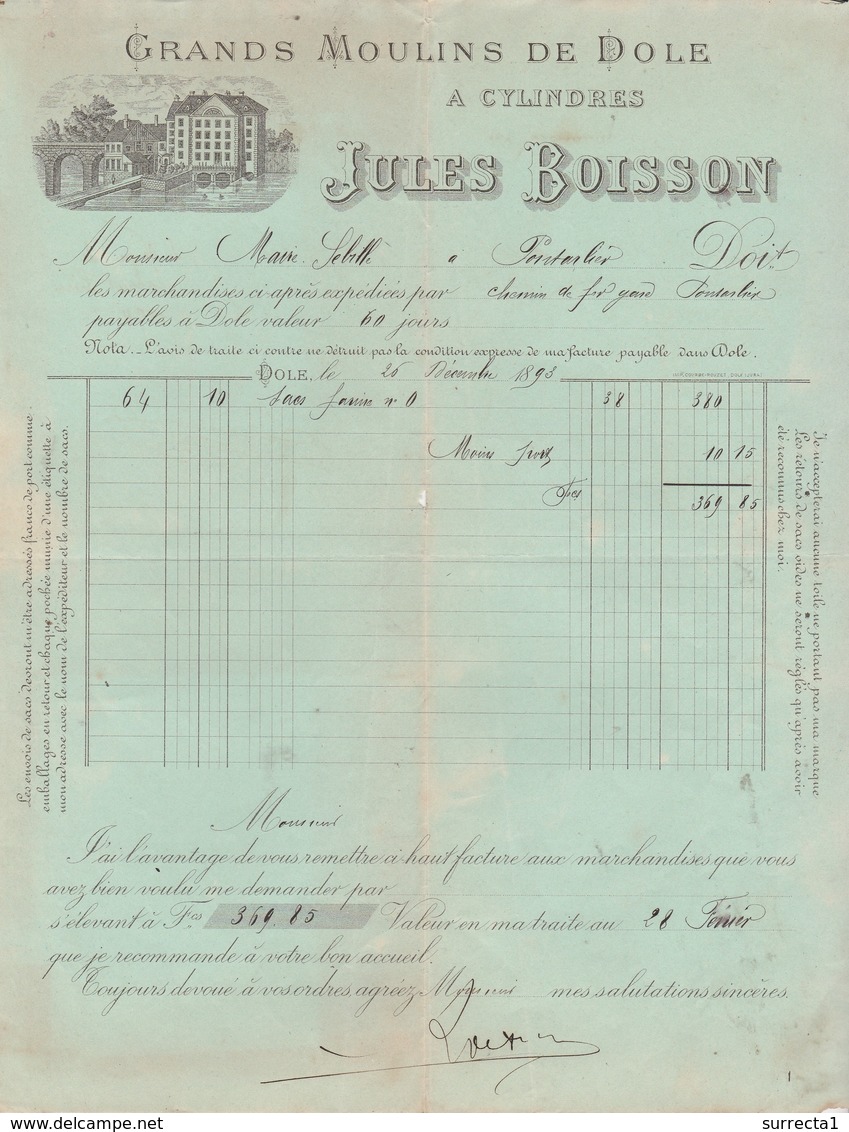 GRANDS MOULINS DE DOLE
A CYLINDRES
JULES BOISSON
Monsieur Maire-Sebille à Pontarlier Doit
les marchandises ci-après expédiées par chemin de fer gare Pontarlier
payables à Dole valeur 60 jours
Nota._L'avis de traite ci contre ne détruit pas la condition expresse de ma facture payable dans Dole.
DOLE, le 26 Décembre 1893
64 10 sacs farine nº 0 38 380
Moins port 10 15
Fcs 369 85
Les envois de sacs devront m'être adressés franco de port comme
emballages en retour et chaque pochée munie d'une étiquette à
mon adresse avec le nom de l'expéditeur et le nombre de sacs.
Je n'accepterai aucune toile ne portant pas ma marque
Les retours de sacs vides ne seront réglés qu'après avoir
été reconnus chez moi.
Monsieur
J'ai l'avantage de vous remettre ci-haut facture aux marchandises que vous
avez bien voulu me demander par
s'élevant à Fcs 369.85 Valeur en ma traite au 28 Février
que je recommande à votre bon accueil.
Toujours dévoué à vos ordres, agréez Monsieur mes salutations sincères.
1
www.delcampe.net
surrecta1